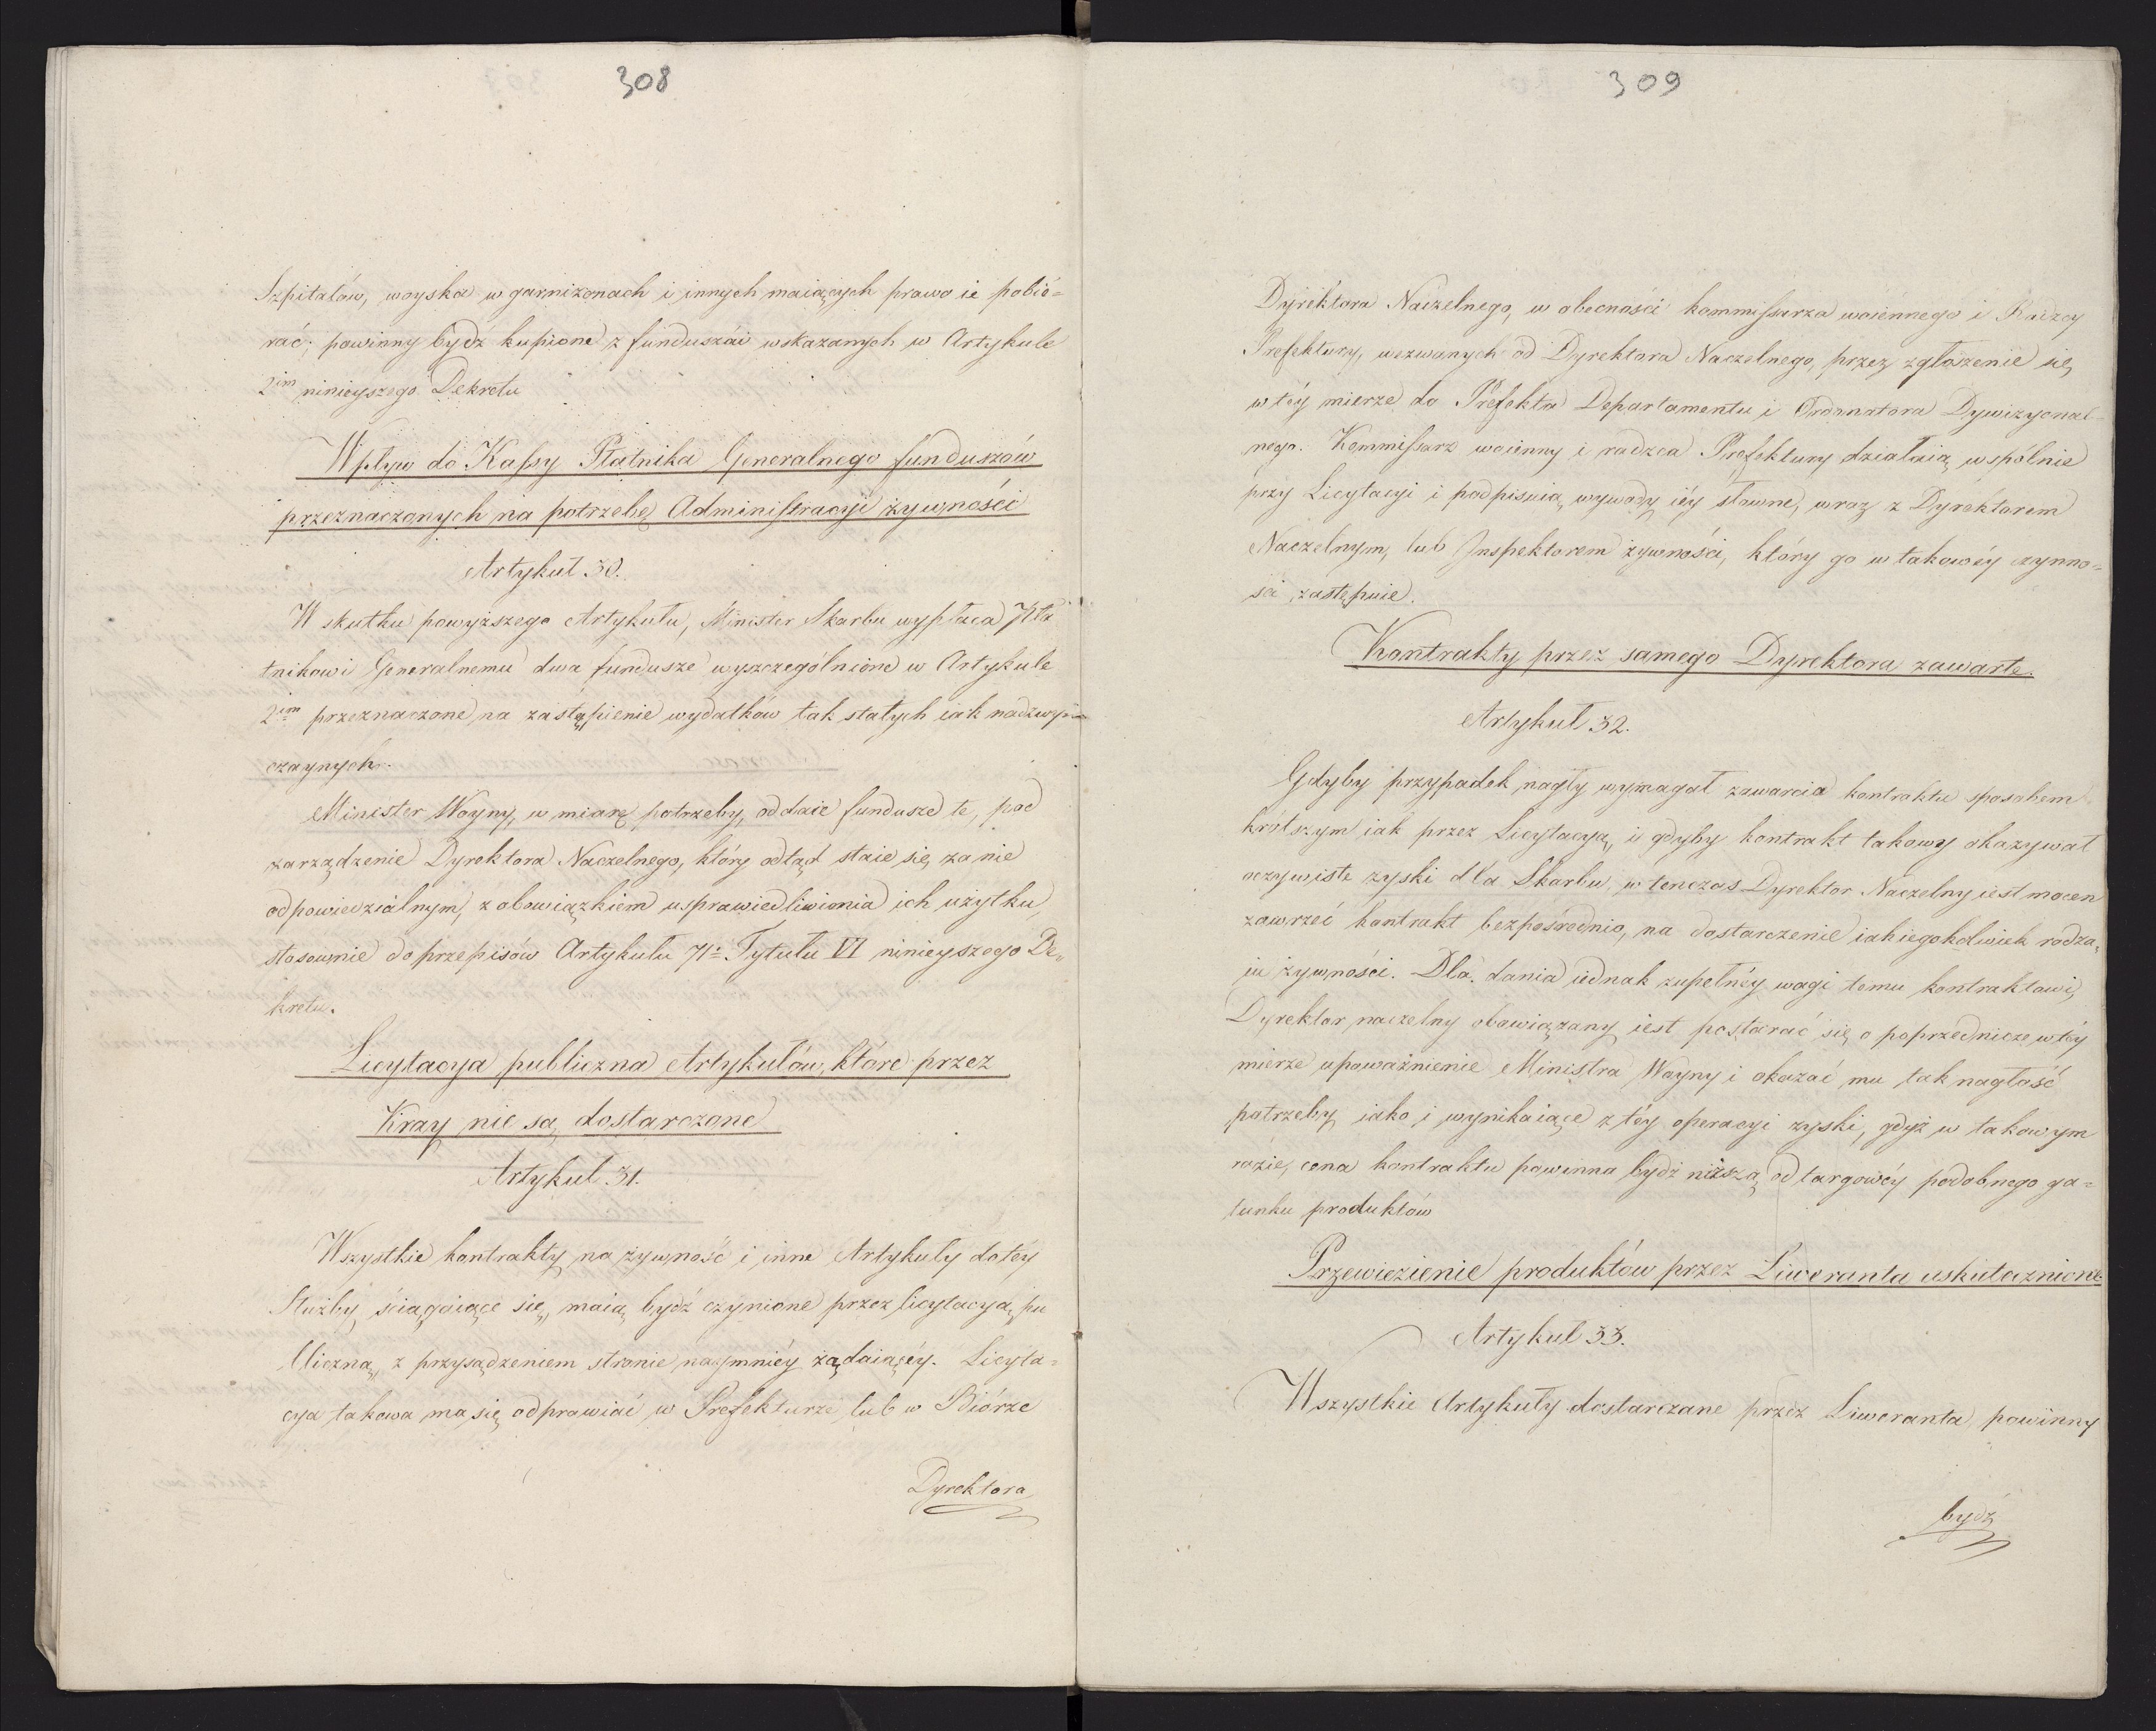 308
Szpitalów, woyska w garnizonach i innych maiących prawo ie pobié=
rać; powinny bydź kupione z funduszói wskazanych w Artykule
2im ninieyszego Dekretu
Wpływ do Kassy Płatnika Generalnego funduszów
przeznaczonych na potrzebę Administracyi żywności
Artykuł 30.
W skutku powyższego Artykułu, Minister Skarbu wypłaca Pła
tnikowi Generalnemu dwa fundusze wyszczególnione w Artykule
2im przeznaczone na zastąpienie wydatków tak stałych iak nadzwy=
czaynych.
Minister Woyny, w miarę potrzeby, oddaie fundusze te, pod
zarządzenie Dyrektora Naczelnego, który odtąd staie się za nie
odpowiedzialnym, z obowiązkiem usprawiedliwienia ich użytku,
stosownie do przepisów Artykułu 71o Tytułu VI ninieyszego De=
kretu.
Licytacya publiczna Artykułów, które przez
Kray nie są dostarczone
Artykuł 31.
Wszystkie kontrakty na żywność i inne Artykuły do téy
Służby ściągaiące się, maią bydź czynione przez licytacyą pu
bliczną, z przysądzeniem stronie naymniéy żądaiącéy. Licyta=
cya takowa ma się odprawiać w Prefekturze lub w Biórze
Dyrektora
309
Dyrektora Naczelnego, w obecności kommissarza woiennego i Radzcy
Prefektury, wezwanych od Dyrektora Naczelnego, przez zgłoszenie się
w téy mierze do Prefekta Departamentu i Ordonatora Dywizyonal=
nego. Kommissarz woienny i radzca Prefektury działaią wspólnie
przy Licytacyi i podpisuią wywody iéy słowne, wraz z Dyrektorem
Naczelnym, lub Inspektorem żywności, który go w takowéy czynno=
ści zastępuie.
Kontrakty przez samego Dyrektora zawarte.
Artykuł 32.
Gdyby przypadek nagły wymagał zawarcia kontraktu sposobem
krótszym iak przez Licytacyą, i gdyby kontrakt takowy okazywał
oczywiste zyski dla Skarbu, w tenczas Dyrektor Naczelny iest mocen
zawrzeć kontrakt bezpośrednio, na dostarczenie iakiegokolwiek rodza=
iu żywności. Dla dania iednak zupełnéy wagi temu kontraktowi,
Dyrektor naczelny obowiązany iest postarać się o poprzednicze w téy
mierze upoważnienie Ministra Woyny i okazać mu tak nagłość
potrzeby iako i wynikaiące z téy operacyi zyski, gdyż w takowym
razie, cena kontraktu powinna bydź niższa od targowéy podobnego ga=
tunku produktów
Przewiezienie produktów przez Liweranta uskutecznione
Artykuł 33.
Wszystkie Artykuły dostarczane przez Liweranta powinny
bydź